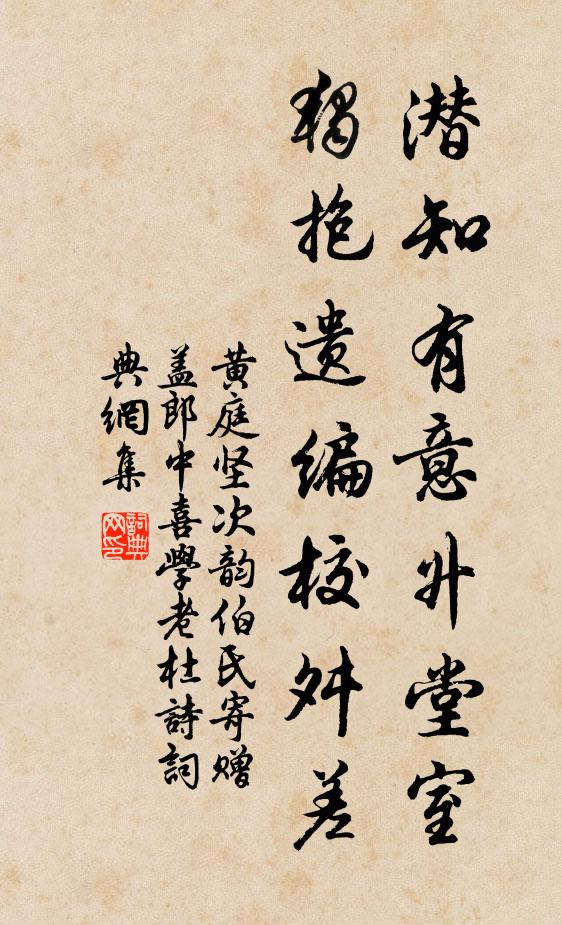 潜知有意升堂室
独抱遗编校舛差
黄庭坚次韵伯氏寄赠
盖郎中喜學老杜詩詞
典網集
詞典網印